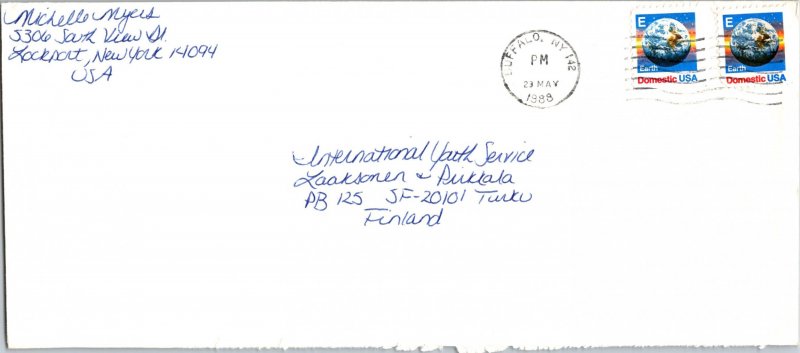 Michelle Myers
5306 South View Dr.
Lockport, New York 14094
USA
BUFFALO, NY 142
PM
23 MAY
1988
E
Earth
Domestic USA
E
Earth
Domestic USA
International Youth Service
Laaksonen & Pirkkala
PB 125 SF-20101 Turku
Finland